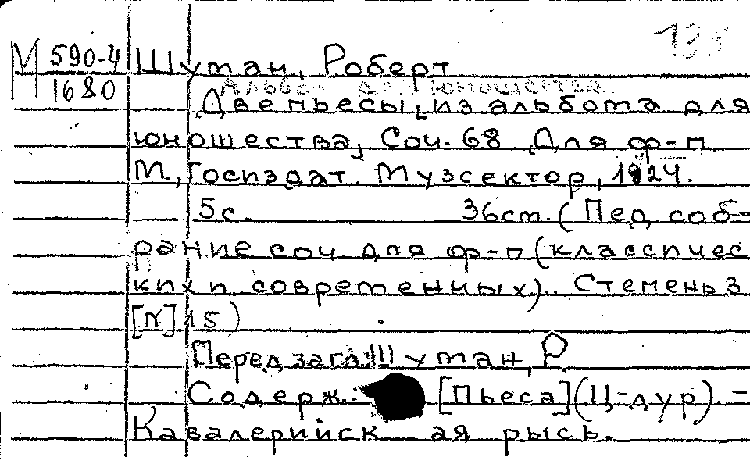 М 590-4 Шуман, Роберт
1680 Альбом для юношества.
Две пьесы, из альбома для
юношества, Соч. 68 Для ф-п.
М., Госиздат. Музсектор, 1924.
5с. 36см. (Пед соб-
рание соч. для ф-п (классичес
ких и современных). Степень 3
[N] 15)
Перед загл: Шуман, Р.
Содерж.: [Пьеса] (Ц-дур). -
Кавалерийск ая рысь.